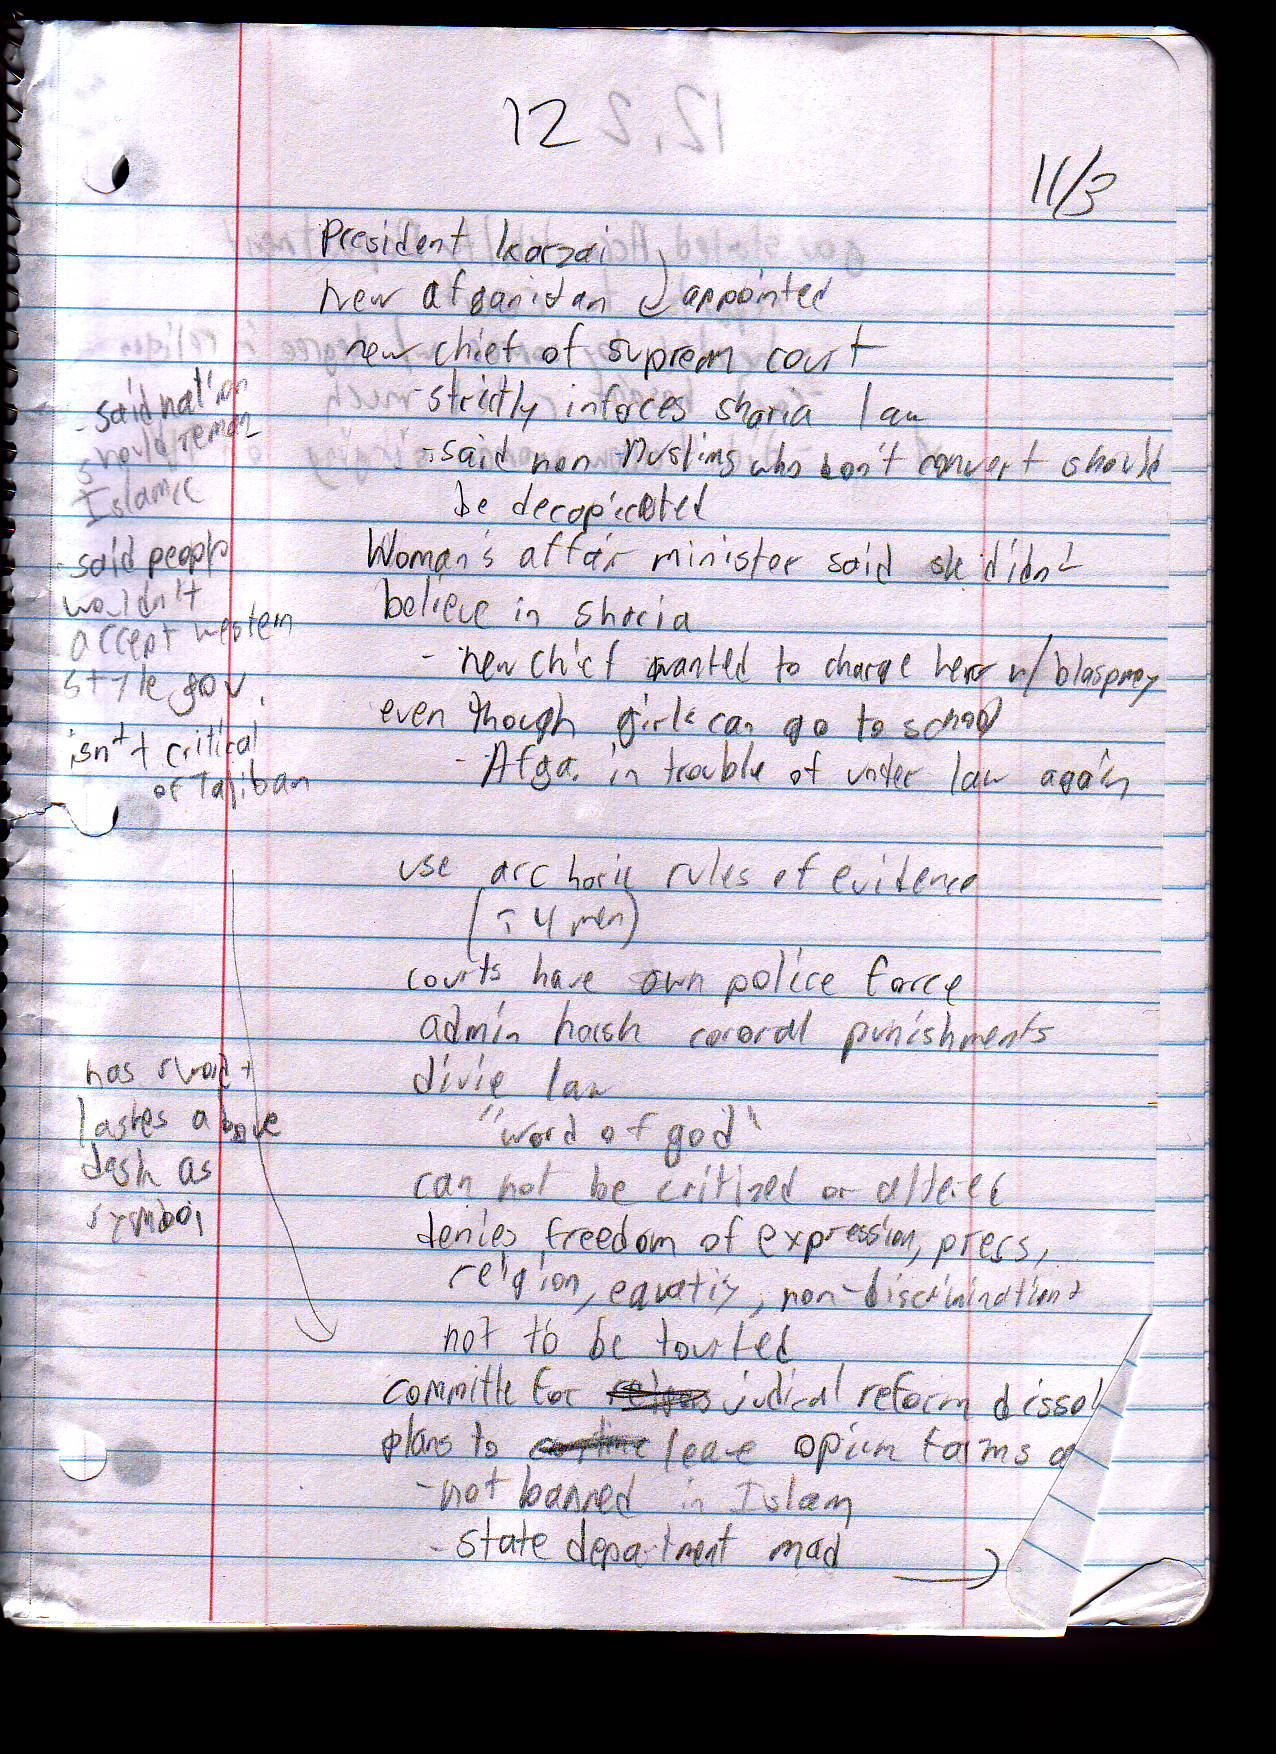 12
11/3
President Karzai
new afganistan appointed
new chief of suprem court
-strictly inforces sharia law
-said non-Muslims who don't convert should
be decapicated
Woman's affair minister said she didn't
believe in sharia
-new chief wanted to charge her w/ blaspmey
even though girls can go to school
- Afga. in trouble of under law again
use archaric rules of evidence
( 4 men)
courts have own police force
admin harsh cororal punishments
divie law
"word of god"
can not be critized or altered
denies freedom of expression, press,
religion, equality, non-discrimination +
not to be tourted
committe for judical reform dissol
plans to leave opium farms a
-not banned in Islam
-state department mad
-said nation
should reman
Islamic
-said people
wouldn't
accept western
style gov.
isn't critical
of Taliban
has sword +
lashes above
desk as
symbol